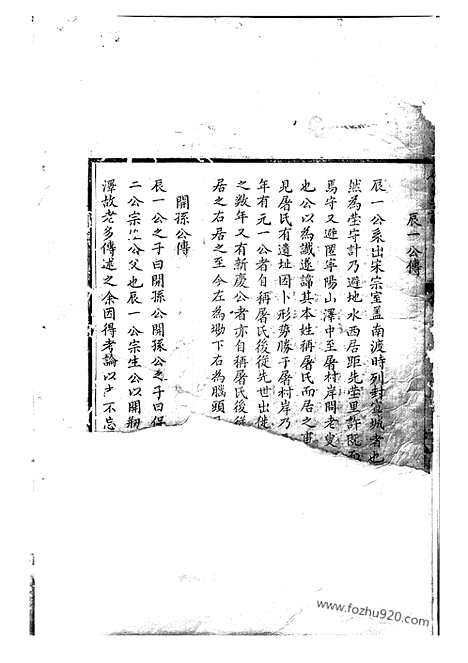 辰一公傳
辰一公系出宋宗室蓋南渡時列封宣城者也
然為塋守計乃避地水西居距先塋里許既而
馬守又避匿寧陽山澤中至屠村岸問老叟
也公以為讖遂諱其本姓稱屠氏而居之事
見屠氏有遺址因卜形勢勝于屠村岸乃
年有元一公者自稱屠氏後從先世出徙
之數年又有新慶公者亦自稱屠氏後從
居之右居之至今左為塘下右為腦頭
開孫公傳
辰一公之子曰開孫公開孫公之子曰保
二公宗公父也辰一公宗生公以開剏
澤故老多傳述之余因得考論以不忘
www.fozhu920.com